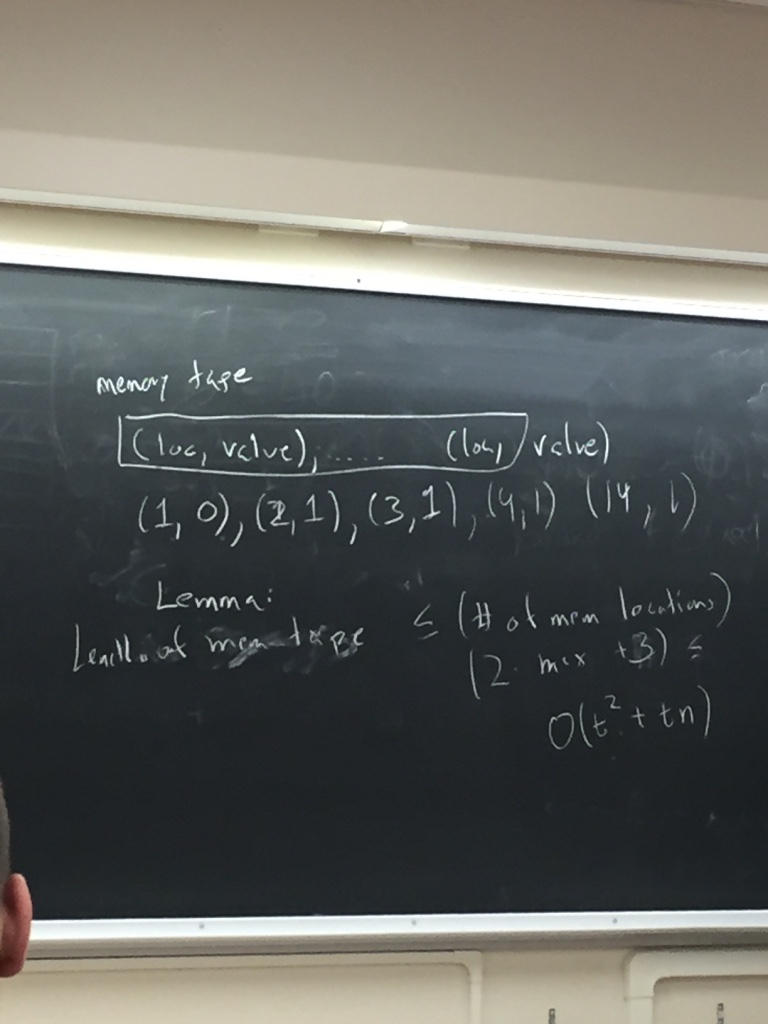 memory tape
(loc, value), ..... (loc, value)
(1, 0), (2, 1), (3, 1), (4, 1) (14, 1)
Lemma:
Length of mem tape ≤ (# of mem locations)
(2. max +3) ≤
O(t² + tn)